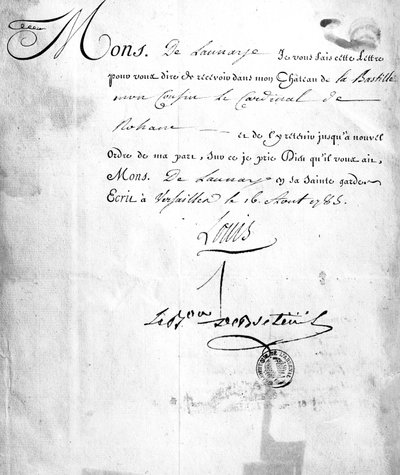 Mons. De Launay Je vous fais cette Lettre
pour vous dire de recevoir dans mon Château de la Bastille
mon Cousin le Cardinal de
Rohan et de l'y retenir jusqu'à nouvel
Ordre de ma part, Sur ce je prie Dieu qu'il vous ait,
Mons. De Launay en sa Sainte garde
Ecrit à Versailles le 16 Aout 1785.
Louis
Le Bon De Breteüil